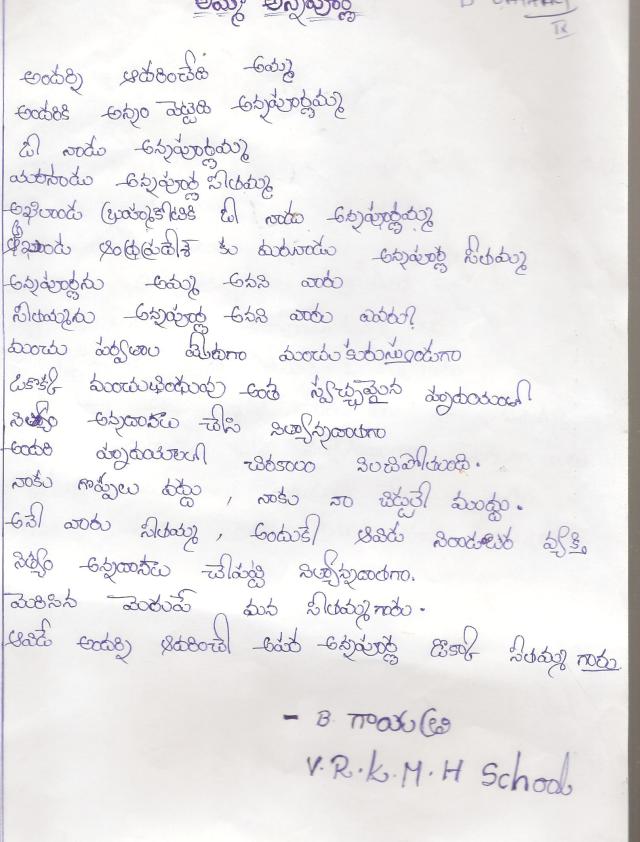 అమ్మ అన్నపూర్ణ
IX
అందర్ని ఆదరించేది అమ్మ
అందరికి అన్నం పెట్టెది అన్నపూర్ణమ్మ
ఓ నాడు అన్నపూర్ణమ్మ
మరునాడు అన్నపూర్ణ సీతమ్మ
అఖిలాండ బ్రహ్మాకోటికి ఓ నాడు అన్నపూర్ణమ్మ
ఆంధ్రప్రదేశ్ కు మరునాడు అన్నపూర్ణ సీతమ్మ
అన్నపూర్ణను అమ్మ అనని వారు
సీతమ్మను అన్నపూర్ణ అనని వారు ఎవరు?
మంచు పర్వతాల మీదుగా మంచుకురుస్తూండగా
ఒకొక్క మంచుబిందువు అంత స్వచ్ఛమైన హృదయంతో
నిత్యం అన్నదానాలు చేసి నిత్యాన్నదాతగా
అందరి హృదయాలలో చిరకాలం నిలచిపోతుంది.
నాకు గొప్పలు వద్దు, నాకు నా బిడ్డలే ముద్దు.
అనే వారు సీతమ్మ, అందుకే ఆవిడ నిరాడంబర వ్యక్తి
నిత్యం అన్నదానాలు చేపట్టి నిత్యాన్నదాతగా.
మెరిసిన మెరుపే మన సీతమ్మగారు.
ఆవిడే అందర్ని ఆదరించే అపర అన్నపూర్ణ డొక్కా సీతమ్మ గారు
- B గాయత్రి
V.R.K.M.H School